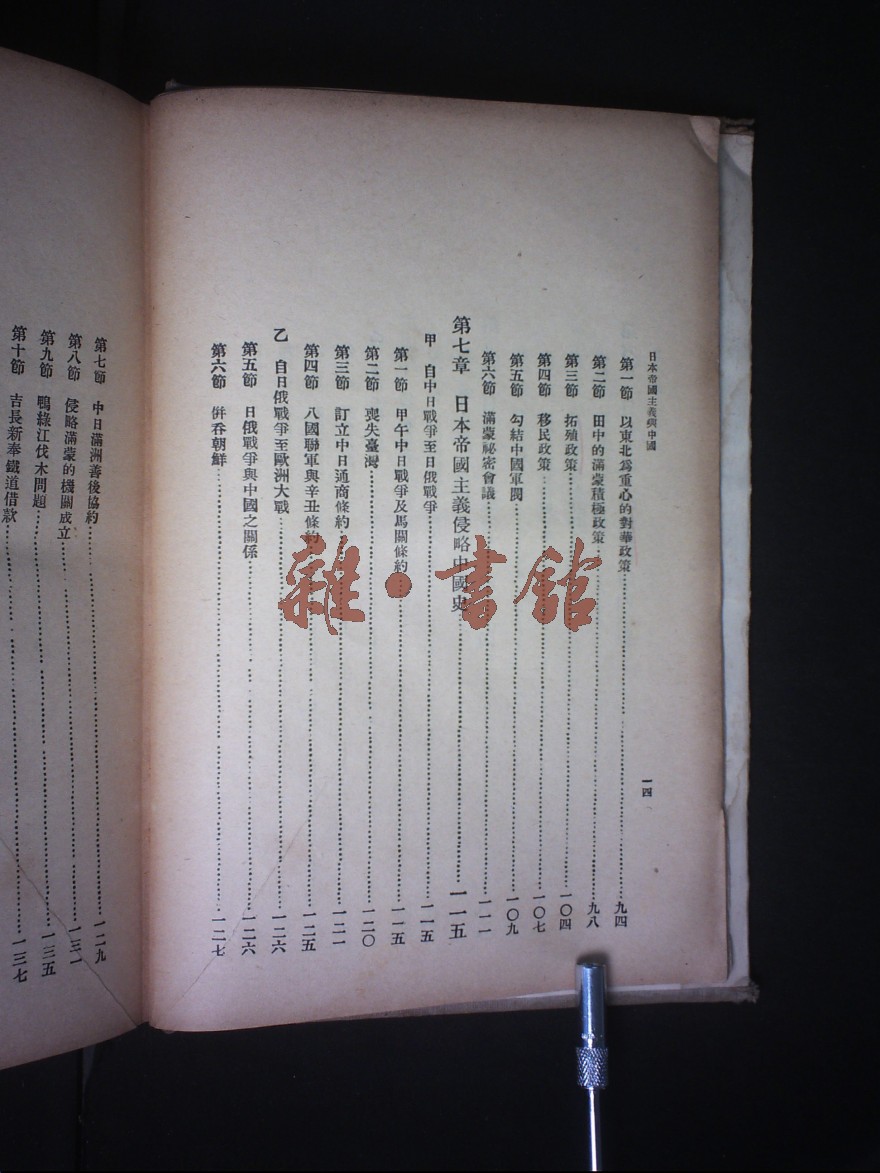 日本帝國主義與中國
一四
第一節 以東北爲重心的對華政策……九四
第二節 田中的滿蒙積極政策……九八
第三節 拓殖政策……一〇四
第四節 移民政策……一〇七
第五節 勾結中國軍閥……一〇九
第六節 滿蒙祕密會議……一一一
第七章 日本帝國主義侵略中國史……一一五
甲 自中日戰爭至日俄戰爭……一一五
第一節 甲午中日戰爭及馬關條約……一一五
第二節 喪失臺灣……一二〇
第三節 訂立中日通商條約……一二一
第四節 八國聯軍與辛丑條約……一二五
乙 自日俄戰爭至歐洲大戰……一二六
第五節 日俄戰爭與中國之關係……一二六
第六節 倂吞朝鮮……一二七
第七節 中日滿洲善後協約……一二九
第八節 侵略滿蒙的機關成立……一三一
第九節 鴨綠江伐木問題……一三五
第十節 吉長新奉鐵道借款……一三七
雜·書館